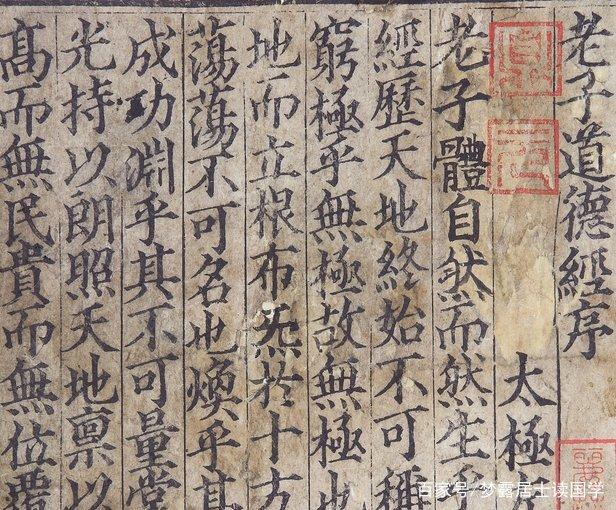 老子道德經序
太極
老子體自然而然生乎
經歷天地終始不可稱
窮極乎無極故無極也
地而立根布炁於十方
蕩蕩不可名也煥乎其
成功淵乎其不可量堂
光持以朗照天地稟以
髙而無民貴而無位覆
百家号/梦露居士读国学